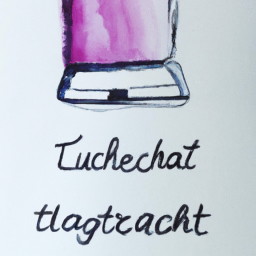 Tuchechat
tlagtracht